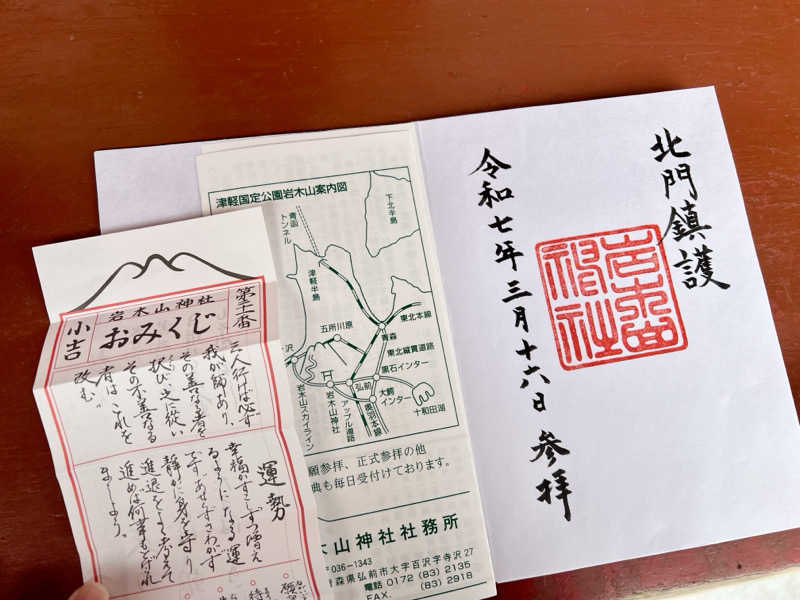 北門鎮護
岩木山神社
令和七年三月十六日 参拝
津軽国定公園岩木山案内図
青函トンネル
下北半島
津軽半島
五所川原
青森
東北本線
東北縦貫道路
黒石インター
弘前
大鰐インター
十和田湖
岩木山神社
岩木山スカイライン
アップル道路
奥羽本線
願参拝、正式参拝の他
典も毎日受付けております。
木山神社社務所
〒036-1343
青森県弘前市大字百沢字寺沢27
電話 0172 (83) 2135
FAX. (83) 2918
岩木山神社
おみくじ
小吉
三人行けば必ず
我が師あり、
その善なる者を
択び之に從い
その不善なる
者は これを
改む。
運勢
幸福がすこしずつ増え
るようになる運
です あせらずさわがず
静かに身を守り
進退をよく考えて
進めば何事もとげれ
ましょう。